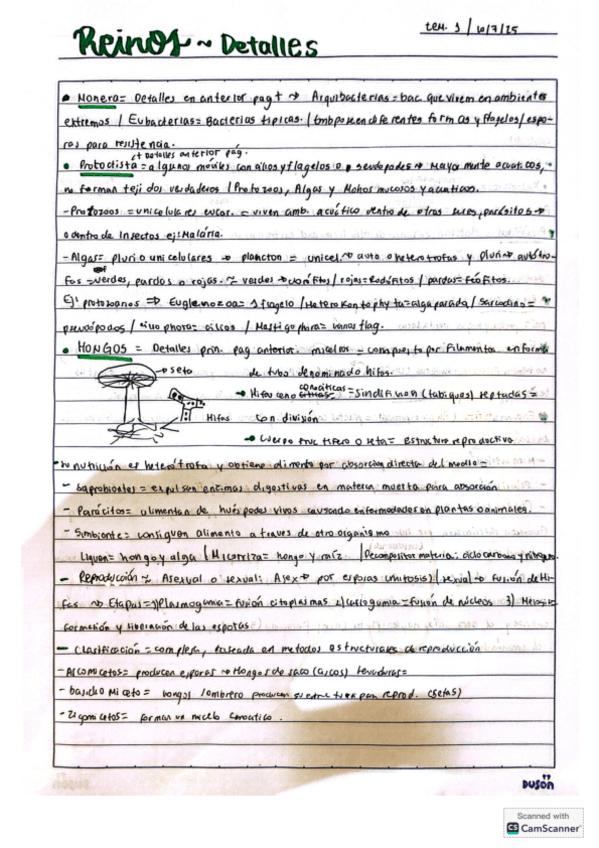 Reinos ~ Detalles
sem. 1 / 10/7/25
• Monera = Detalles en anterior pag + → Arquibacterias = bac. que viven en ambientes
extremos / Eubacterias = Bacterias tipicas. / tmb poseen diferentes formas y flagelos / espo-
ras para resistencia.
↳ + Detalles anterior pág.
• Protoctista = algunos móviles con cilios y flagelos o pseudopodos → Mayormente acuaticos,
no forman tejidos verdaderos / Protozoos, Algas y Mohos mucosos y acuaticos.
- Protozoos = unicelulares eucar. = viven amb. acuático dentro de otros seres, parásitos →
o dentro de insectos ej: Malaria.
- Algas = pluri o unicelulares → plancton = unicel. → auto o heterotrofas y pluri → autótro-
fas = verdes, pardas o rojas. ~ verdes → / rojas = Rodófitos / pardas = feófitos.
Ej: protozoarios ⇒ Euglenozoa = 1 flagelo / Heterokontophyta = alga parada / Sarcodino =
pseudópodos / = cilios / Mastigophora = varios flag.
• HONGOS = Detalles prin. pag anterior. micelios = compuesto por filamentos en forma
→ seta de tubo denominado hifas.
→ Hifas cenocíticas = sin difinon (tabiques) septadas =
Hifas con división
→ cuerpo fructifero o seta = estructura reproductiva
- nutrición es heterótrofa y obtiene alimento por absorcion directa del medio =
- Saprobiontes = expulsan enzimas digestivas en materia muerta para absorción
- Parácitos = alimentan de huéspedes vivos causando enfermedades en plantas o animales.
- Simbionte = consiguen alimento a traves de otro organismo
Liquen = hongo y alga / Micorriza = hongo y raíz / Decompositor materia: ciclo carbono y nitrogeno.
- Reproducción ~ Asexual o sexual: Asex → por esporas (mitosis) / sexual → fusión de Hi-
fas → Etapas = 1) Plasmogamia = fusión citoplasmas 2) cariogamia = fusión de núcleos 3) Meiosis
formación y liberación de las esporas
- Clasificación = compleja, basada en metodos estructurales de reproducción
- Ascomicetos = producen esporas → Hongos de saco (ascos) levaduras =
- basidiomiceto = hongos sombrero producen reprod. (setas)
- Zigomicetos = forman un micelo cenocitico.
DUSÓN
Scanned with
CS CamScanner